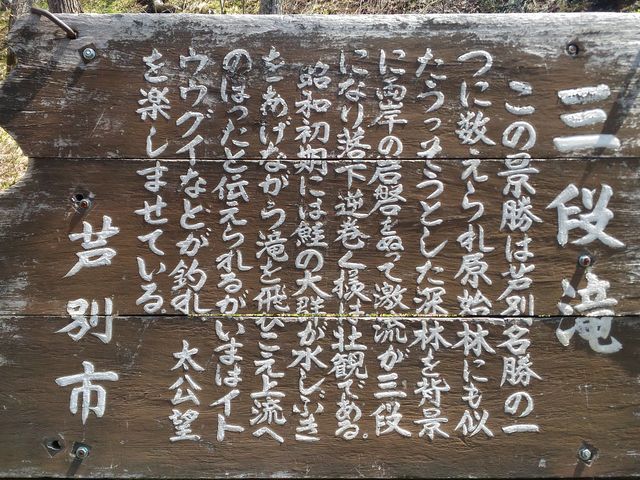 三段滝
この景勝は芦別名勝の一
つに数えられ原始林にも似
たうっそうとした深林を背景
に両岸の岩盤をぬって激流が三段
になり落下逆巻く様は壮観である。
昭和初期には鮭の大群が水しぶき
をあげながら滝を飛びこえ上流へ
のぼったと伝えられるがいまはイト
ウウグイなどが釣れ太公望
を楽しませている。
芦別市